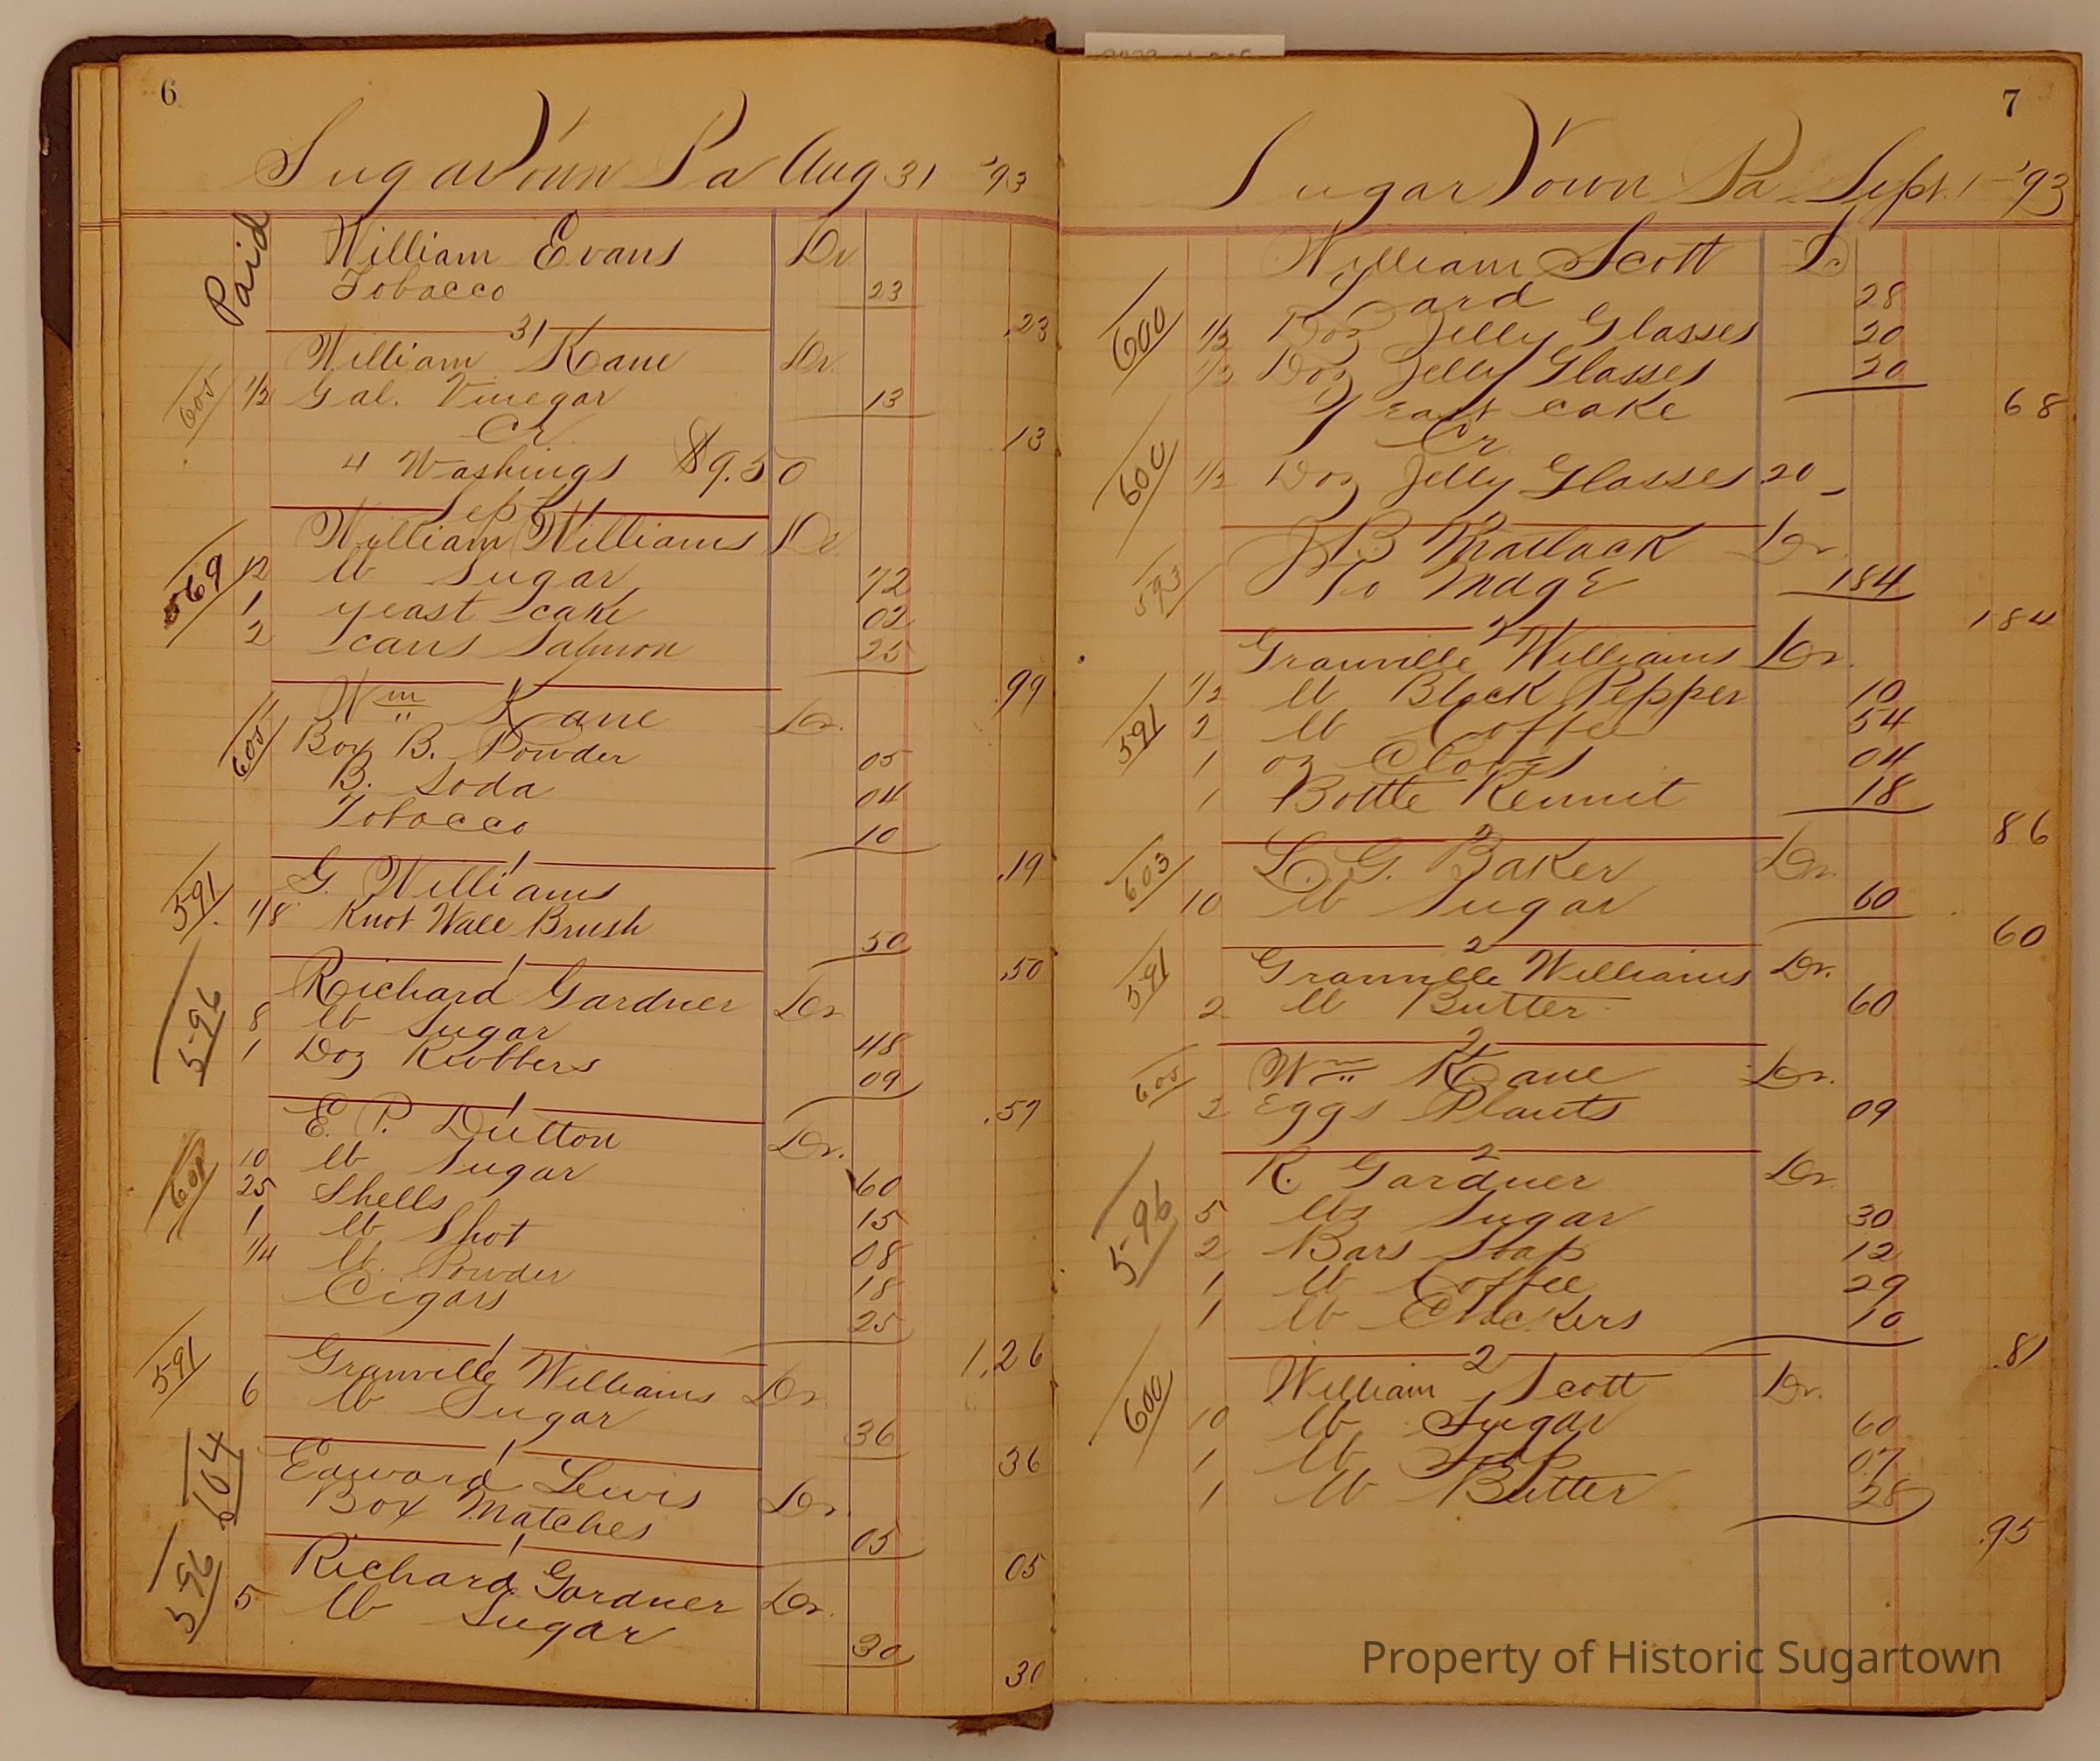 6
SugarTown Pa Aug 31 '93
Paid
William Evans Dr
Tobacco 23
.23
31
William Kane Dr
605 1/2 Gal. Vinegar 13
13
Cr
4 Washings $9.50
Sept 1
William Williams Dr
569 12 lb Sugar 72
1 yeast cake 02
2 cans Salmon 25
.99
1
Wm Kane Dr.
605 Box B. Powder 05
B. Soda 04
Tobacco 10
.19
1
G. Williams
591 1/8 Knot Wall Brush 50
.50
1
Richard Gardner Dr
596 8 lb Sugar 48
1 Doz Rubbers 09
.57
1
E. P. Dutton Dr.
10 lb Sugar 60
25 Shells 15
1 lb Shot 08
1/4 lb. Powder 18
Cigars 25
1.26
1
591 Granville Williams Dr
6 lb Sugar 36
36
1
604 Edward Lewis Dr.
Box Matches 05
05
1
596 Richard Gardner Dr.
5 lb Sugar 30
30
7
SugarTown Pa Sept. 1 - '93
William Scott Dr
Lard 28
600 1/2 Doz Jelly Glasses 20
1/2 Doz Jelly Glasses 20
68
Yeast cake
Cr
600 1/2 Doz Jelly Glasses 20
J B Matlack Dr.
593 To Mdge 184
184
2
Granville Williams Dr.
1/2 lb Black Pepper 10
591 2 lb Coffee 54
1 oz Cloves 04
1 Bottle Rennit 18
86
2
603 L. G. Baker Dr.
10 lb Sugar 60
60
2
591 Granville Williams Dr.
2 lb Butter 60
2
605 Wm Kane Dr.
2 Eggs Plants 09
2
R. Gardner Dr
596 5 lbs Sugar 30
2 Bars Soap 12
1 lb Coffee 29
1 lb Crackers 10
.81
2
William Scott Dr.
600 10 lb Sugar 60
1 lb 07
1 lb Butter 28
.95
Property of Historic Sugartown